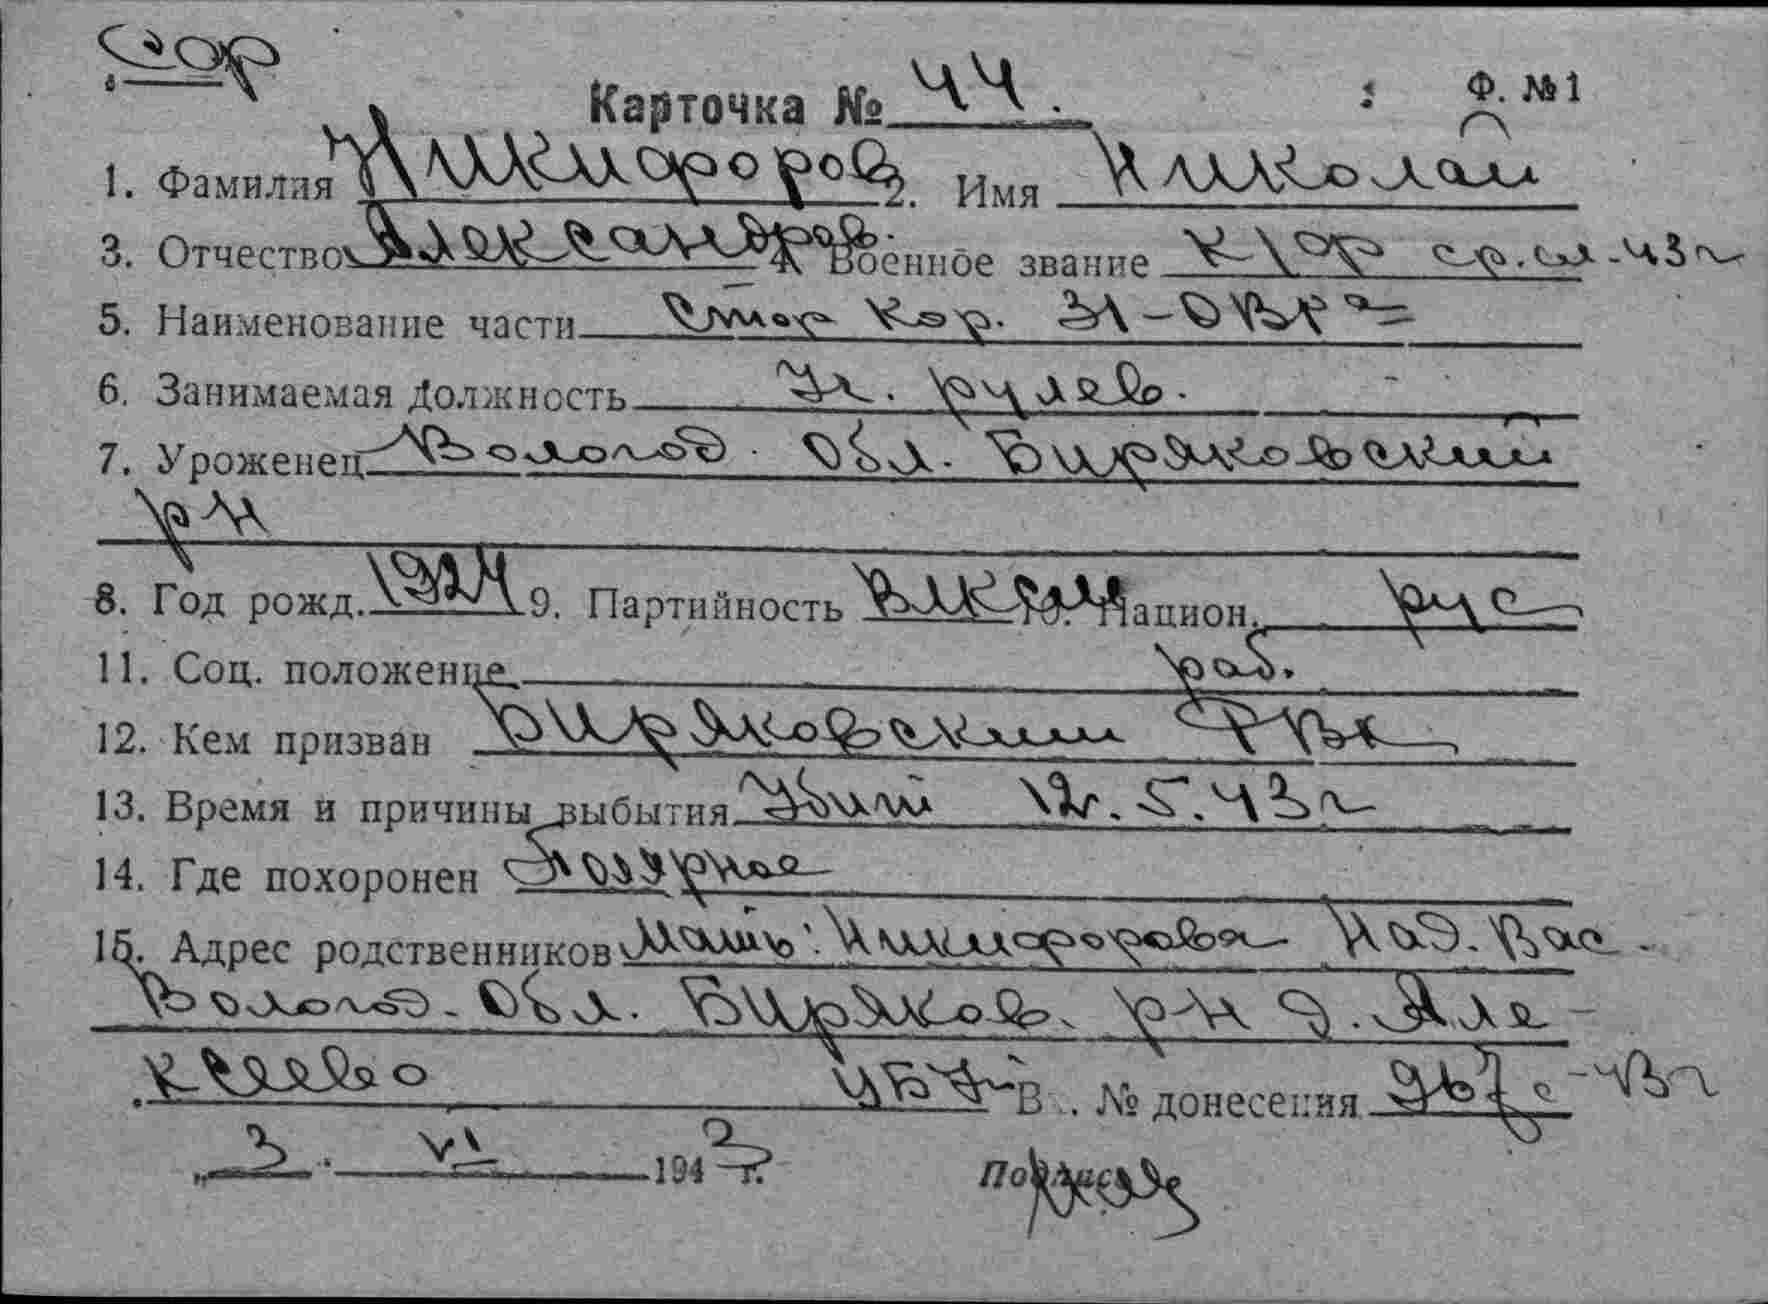 Карточка № 44. Ф. № 1
1. Фамилия Никифоров 2. Имя Николай
3. Отчество Александров. 4. Военное звание ср.сл.-43г
5. Наименование части Стор. Кор.
6. Занимаемая должность Ст. рулев.
7. Уроженец Вологод. обл. Биряковский
р-н
8. Год рожд. 1924 9. Партийность ВЛКСМ 10. Национ. рус
11. Соц. положение раб.
12. Кем призван Биряковский РВК
13. Время и причины выбытия Убит 12.5.43г
14. Где похоронен
15. Адрес родственников Мать: Никифорова Над. Вас.
Волог. обл. Биряков. р-н д. Але-
ксеево В. № донесения 43г
„ 3 " VI 1943 г. Подпись